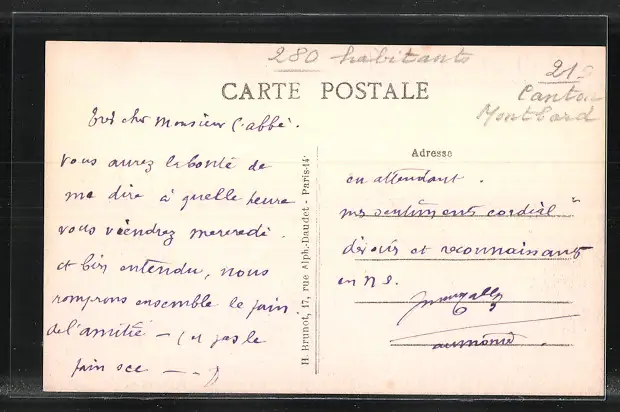 280 habitants
21
Canton
Montbard
CARTE POSTALE
Très cher Monsieur l'abbé.
Vous aurez la bonté de
me dire à quelle heure
vous viendrez mercredi.
et bien entendu, nous
romprons ensemble le pain
de l'amitié — (et pas le
pain sec — —)
H. Brunot, 17, rue Alph.-Daudet - Paris-14
Adresse
en attendant.
mes sentiments cordial
dévoués et reconnaissants
en N S.
aumônier